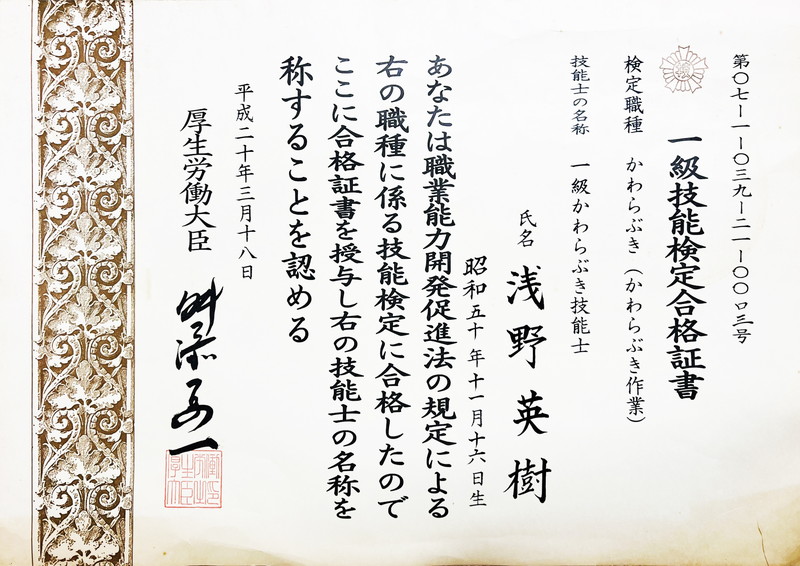 第〇七ー一ー〇三九ー二一ー〇〇〇三号
一級技能検定合格証書
検定職種 かわらぶき(かわらぶき作業)
技能士の名称 一級かわらぶき技能士
氏名 浅野英樹
昭和五十年十一月十六日生
あなたは職業能力開発促進法の規定による
右の職種に係る技能検定に合格したので
ここに合格証書を授与し右の技能士の名称を
称することを認める
平成二十年三月十八日
厚生労働大臣 舛添要一
厚生労働大臣